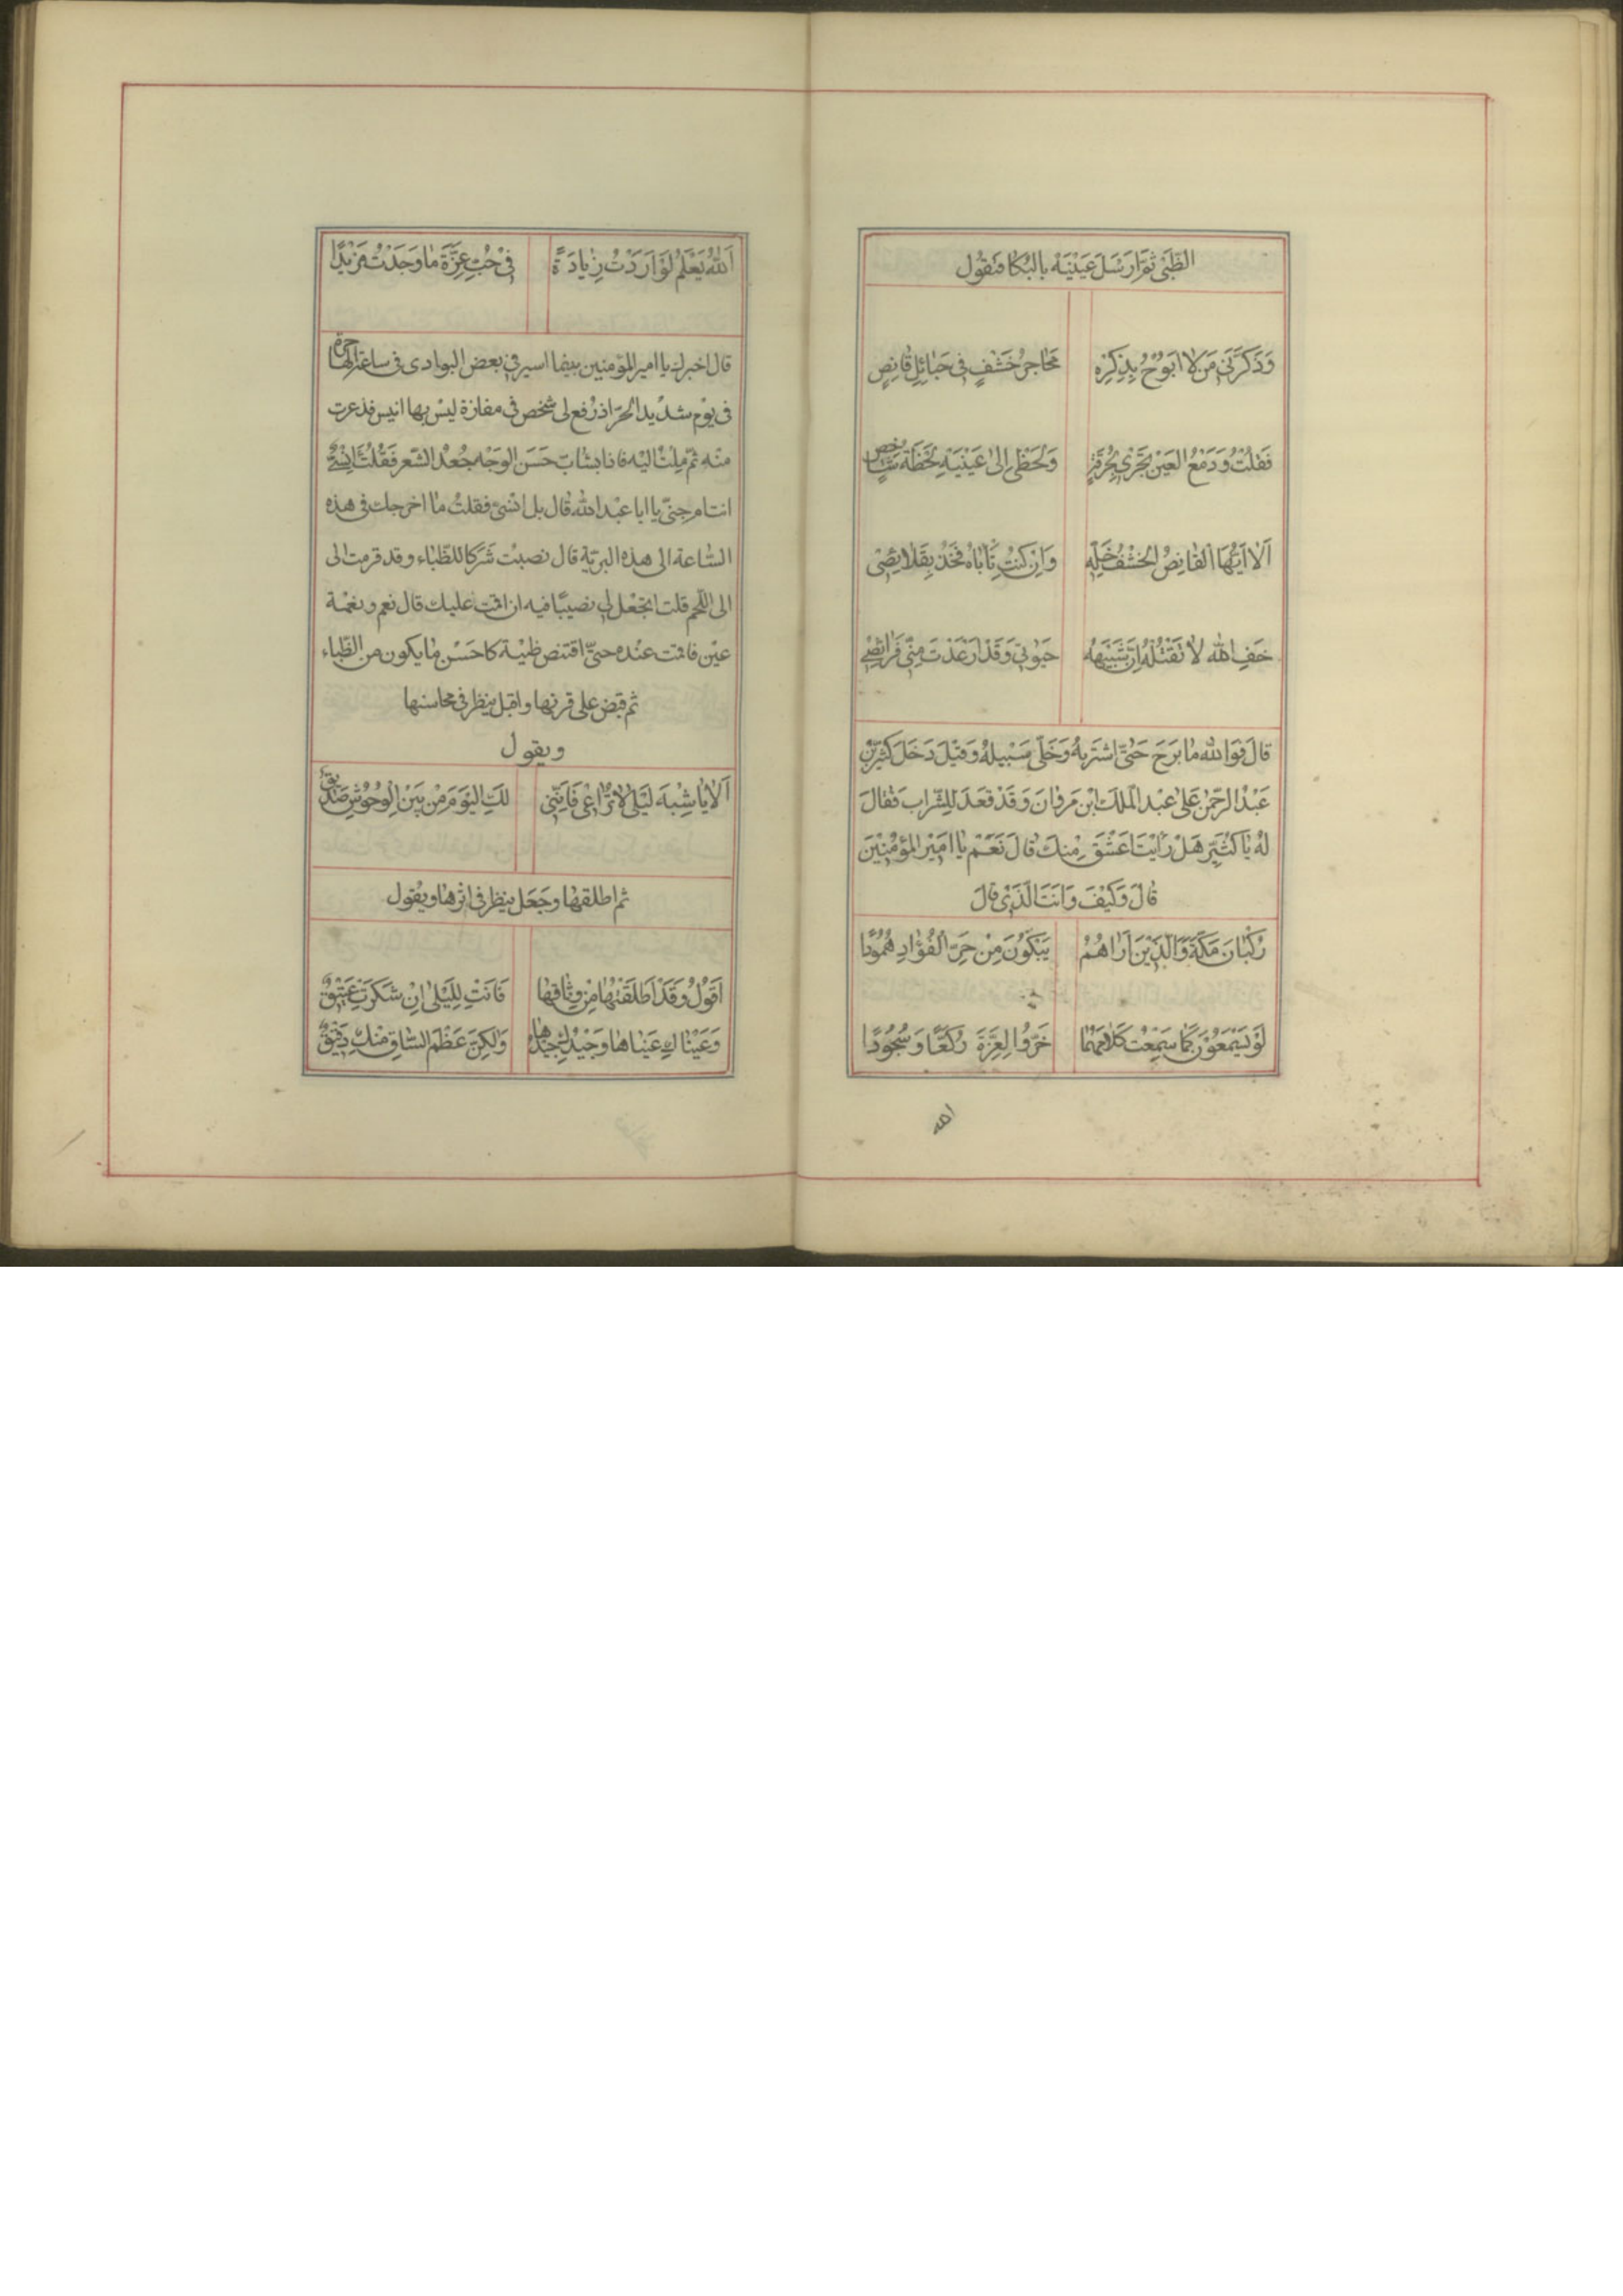 الظَّبْيَ ثُمَّ اَرْسَلَ عَيْنَيْهِ بِالبُكَا فَيَقُول
وَذَكَّرَنِي مَنْ لَا اَبُوْحُ بِذِكْرِهِ مَحَاجِرُ خَشْفٍ فِي حَبَائِلِ قَانِصٍ
فَقُلْتُ وَدَمْعُ العَيْنِ يَجْرِي بِحُرْقَةٍ وَلَحْظِي اِلَى عَيْنَيْهِ لَحْظَةَ شَاخِصٍ
اَلَا اَيُّهَا القَانِصُ الخَشْفَ خَلِّهِ وَاِنْ كُنْتَ تَأبَاهُ فَخُذْ بِقَلَائِصِي
خَفِ اللّٰهَ لَا تَقْتُلْهُ اِنَّ شَبِيْهَهُ حَيٰوتِي وَقَدْ اَرْعَدْتَ مِنِّي فَرَائِصِي
قَالَ فَوَاللّٰهِ مَا بَرِحَ حَتَّى اشْتَرِيهُ وَخَلَّى سَبِيْلَهُ وَقِيْلَ دَخَلَ كُثَيِّرُ بْنُ
عَبْدُ الرَّحْمٰنِ عَلَى عَبْدِ الْمَلَكِ ابْنِ مَرْوَانَ وَقَدْ قَعَدَ لِلشَّرَابِ فَقَالَ
لَهُ يَا كُثَيِّرُ هَلْ رَاَيْتَ اَعْشَقَ مِنْكَ قَالَ نَعَمْ يَا اَمِيْرَ المُؤْمِنِيْنَ
قَالَ وَكَيْفَ وَاَنْتَ الَّذِي قَالَ
رُكْبَانَ مَكَّةَ وَالَّذِيْنَ اَرَاهُمُ يَبْكُوْنَ مِنْ حَرِّ الْفُؤَادِ هُمُوْدًا
لَوْ يَسْمَعُوْنَ كَمَا سَمِعْتُ كَلَامَهَا خَرُّوا لِعَزَّةَ رُكَّعًا وَسُجُوْدًا
الله
اَللّٰهُ يَعْلَمُ لَوْ اَرَدْتُ زِيَادَةً فِي حُبِّ عِزَّةَ مَا وَجَدْتُ مَزِيْدًا
قال اخبرك يا امير المؤمنين بينما اسير في بعض البوادى فى ساعة الهاجرة
فى يوم شديد الحرّ اذ رفع لى شخص فى مفازة ليس بها انيس فذعرت
منه ثمّ ملت اليه فاذا بشابّ حَسَن الوجه جُعْد الشعر فَقُلْتُ اِنْسِيٌّ
انت ام جنيّ يا ابا عبد اللّٰه قال بل انسيّ فقلتُ ما اخرجك فى هذه
السّاعة الى هذه البريّة قال نصبت شَرَكا للظباء وقد قرمت الى
الى اللّحم قلت اتجعل لى نصيبًا فيه ان اقمت عليك قال نعم ونعمة
عين فاقمت عنده حتىّ اقتنص ظبية كاحسن ما يكون من الظّباء
ثم قبض على قرنها واقبل ينظر فى محاسنها
ويقول
اَلَا يَا شِبْهَ لَيْلَى لَا تُرَاعِي فَاِنَّنِي لَكِ الْيَوْمَ مِنْ بَيْنِ الْوُحُوْشِ صَدِيْقٌ
ثم اطلقها وجَعَل ينظر فى اثرها ويقول
اَقُوْلُ وَقَدْ اَطْلَقْتُهَا مِنْ وِثَاقِهَا فَاَنْتِ لِلَيْلَى اِنْ شَكَرْتِ عَتِيْقٌ
وَعَيْنَاكِ عَيْنَاهَا وَجِيْدُكِ جِيْدُهَا وَلٰكِنَّ عَظْمَ السَّاقِ مِنْكِ دَقِيْقٌ